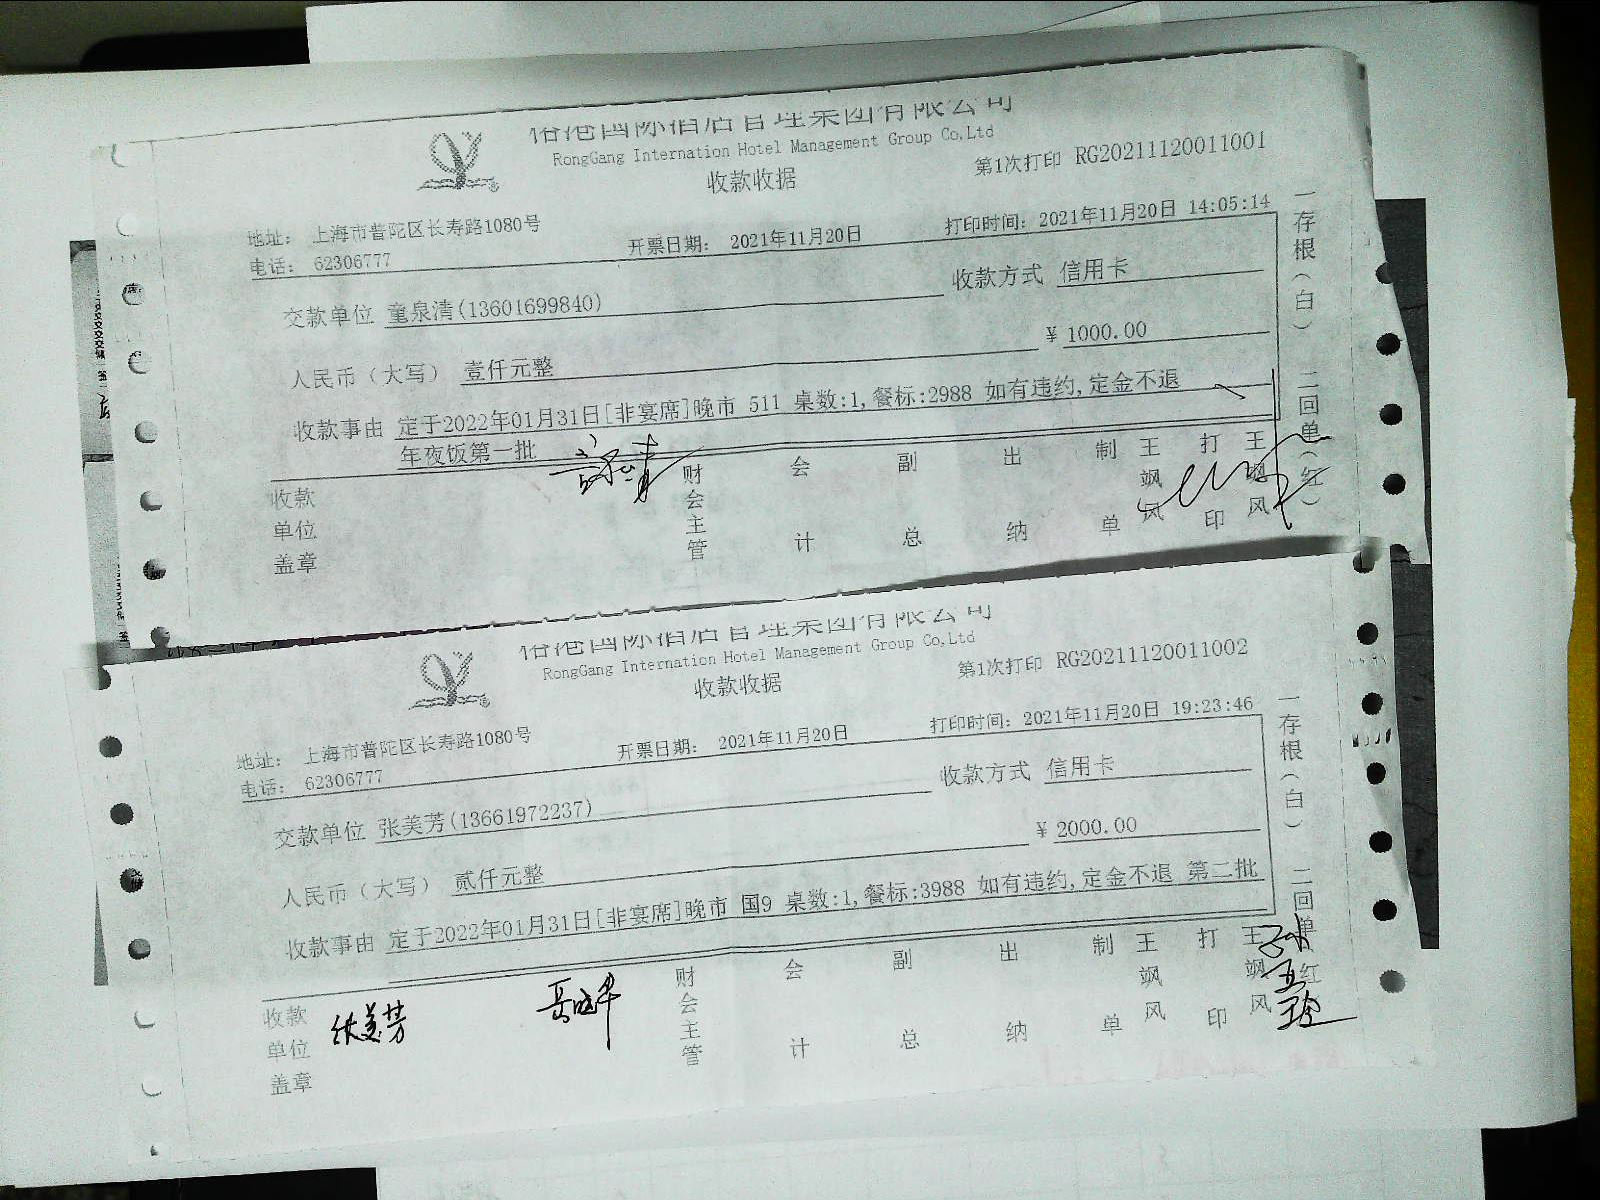 国际酒店管理集团有限公司
RongGang Internation Hotel Management Group Co,Ltd
收款收据
第1次打印 RG20211120011001
地址: 上海市普陀区长寿路1080号
电话: 62306777
开票日期: 2021年11月20日
打印时间: 2021年11月20日 14:05:14
交款单位 童泉清(13601699840)
收款方式 信用卡
人民币(大写) 壹仟元整
¥ 1000.00
收款事由 定于2022年01月31日[非宴席]晚市 511 桌数:1,餐标:2988 如有违约,定金不退
年夜饭第一批
收款单位盖章
财会主管
会计
副总
出纳
制单
王飒风
打印
王飒风
一存根(白) 二回单(红)
国际酒店管理集团有限公司
RongGang Internation Hotel Management Group Co,Ltd
收款收据
第1次打印 RG20211120011002
地址: 上海市普陀区长寿路1080号
电话: 62306777
开票日期: 2021年11月20日
打印时间: 2021年11月20日 19:23:46
交款单位 张美芳(13661972237)
收款方式 信用卡
人民币(大写) 贰仟元整
¥ 2000.00
收款事由 定于2022年01月31日[非宴席]晚市 国9 桌数:1,餐标:3988 如有违约,定金不退 第二批
收款单位盖章
张美芳
财会主管
会计
副总
出纳
制单
王飒风
打印
王飒风
一存根(白) 二回单(红